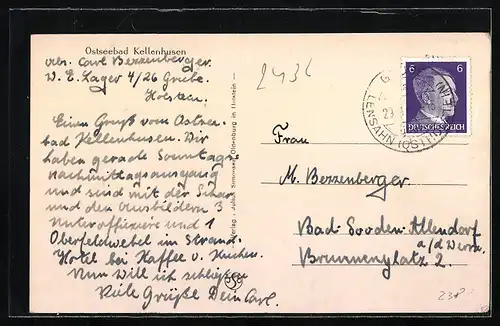 Ostseebad Kellenhusen
Abs. Carl Berzenberger.
W. E. Lager 4/26 Grube.
Holstein.
Einen Gruß vom Ostsee-
bad Kellenhusen. Wir
haben gerade Sonntags-
nachmittagsausgang
und sind mit der Schar
und den Ausbildern 3
Unteroffiziere und 1
Oberfeldwebel im Strand.
Hotel bei Kaffee u. Kuchen.
Nun will ich schließen
Viele Grüße Dein Carl.
Verlag: Julius Simonsen, Oldenburg in Holstein
2436
6 6
DEUTSCHES REICH
LENSAHN (OSTHOLSTEIN)
Frau
M. Berzenberger.
Bad Sooden-Allendorf
a/d Werra.
Brunnenplatz 2.